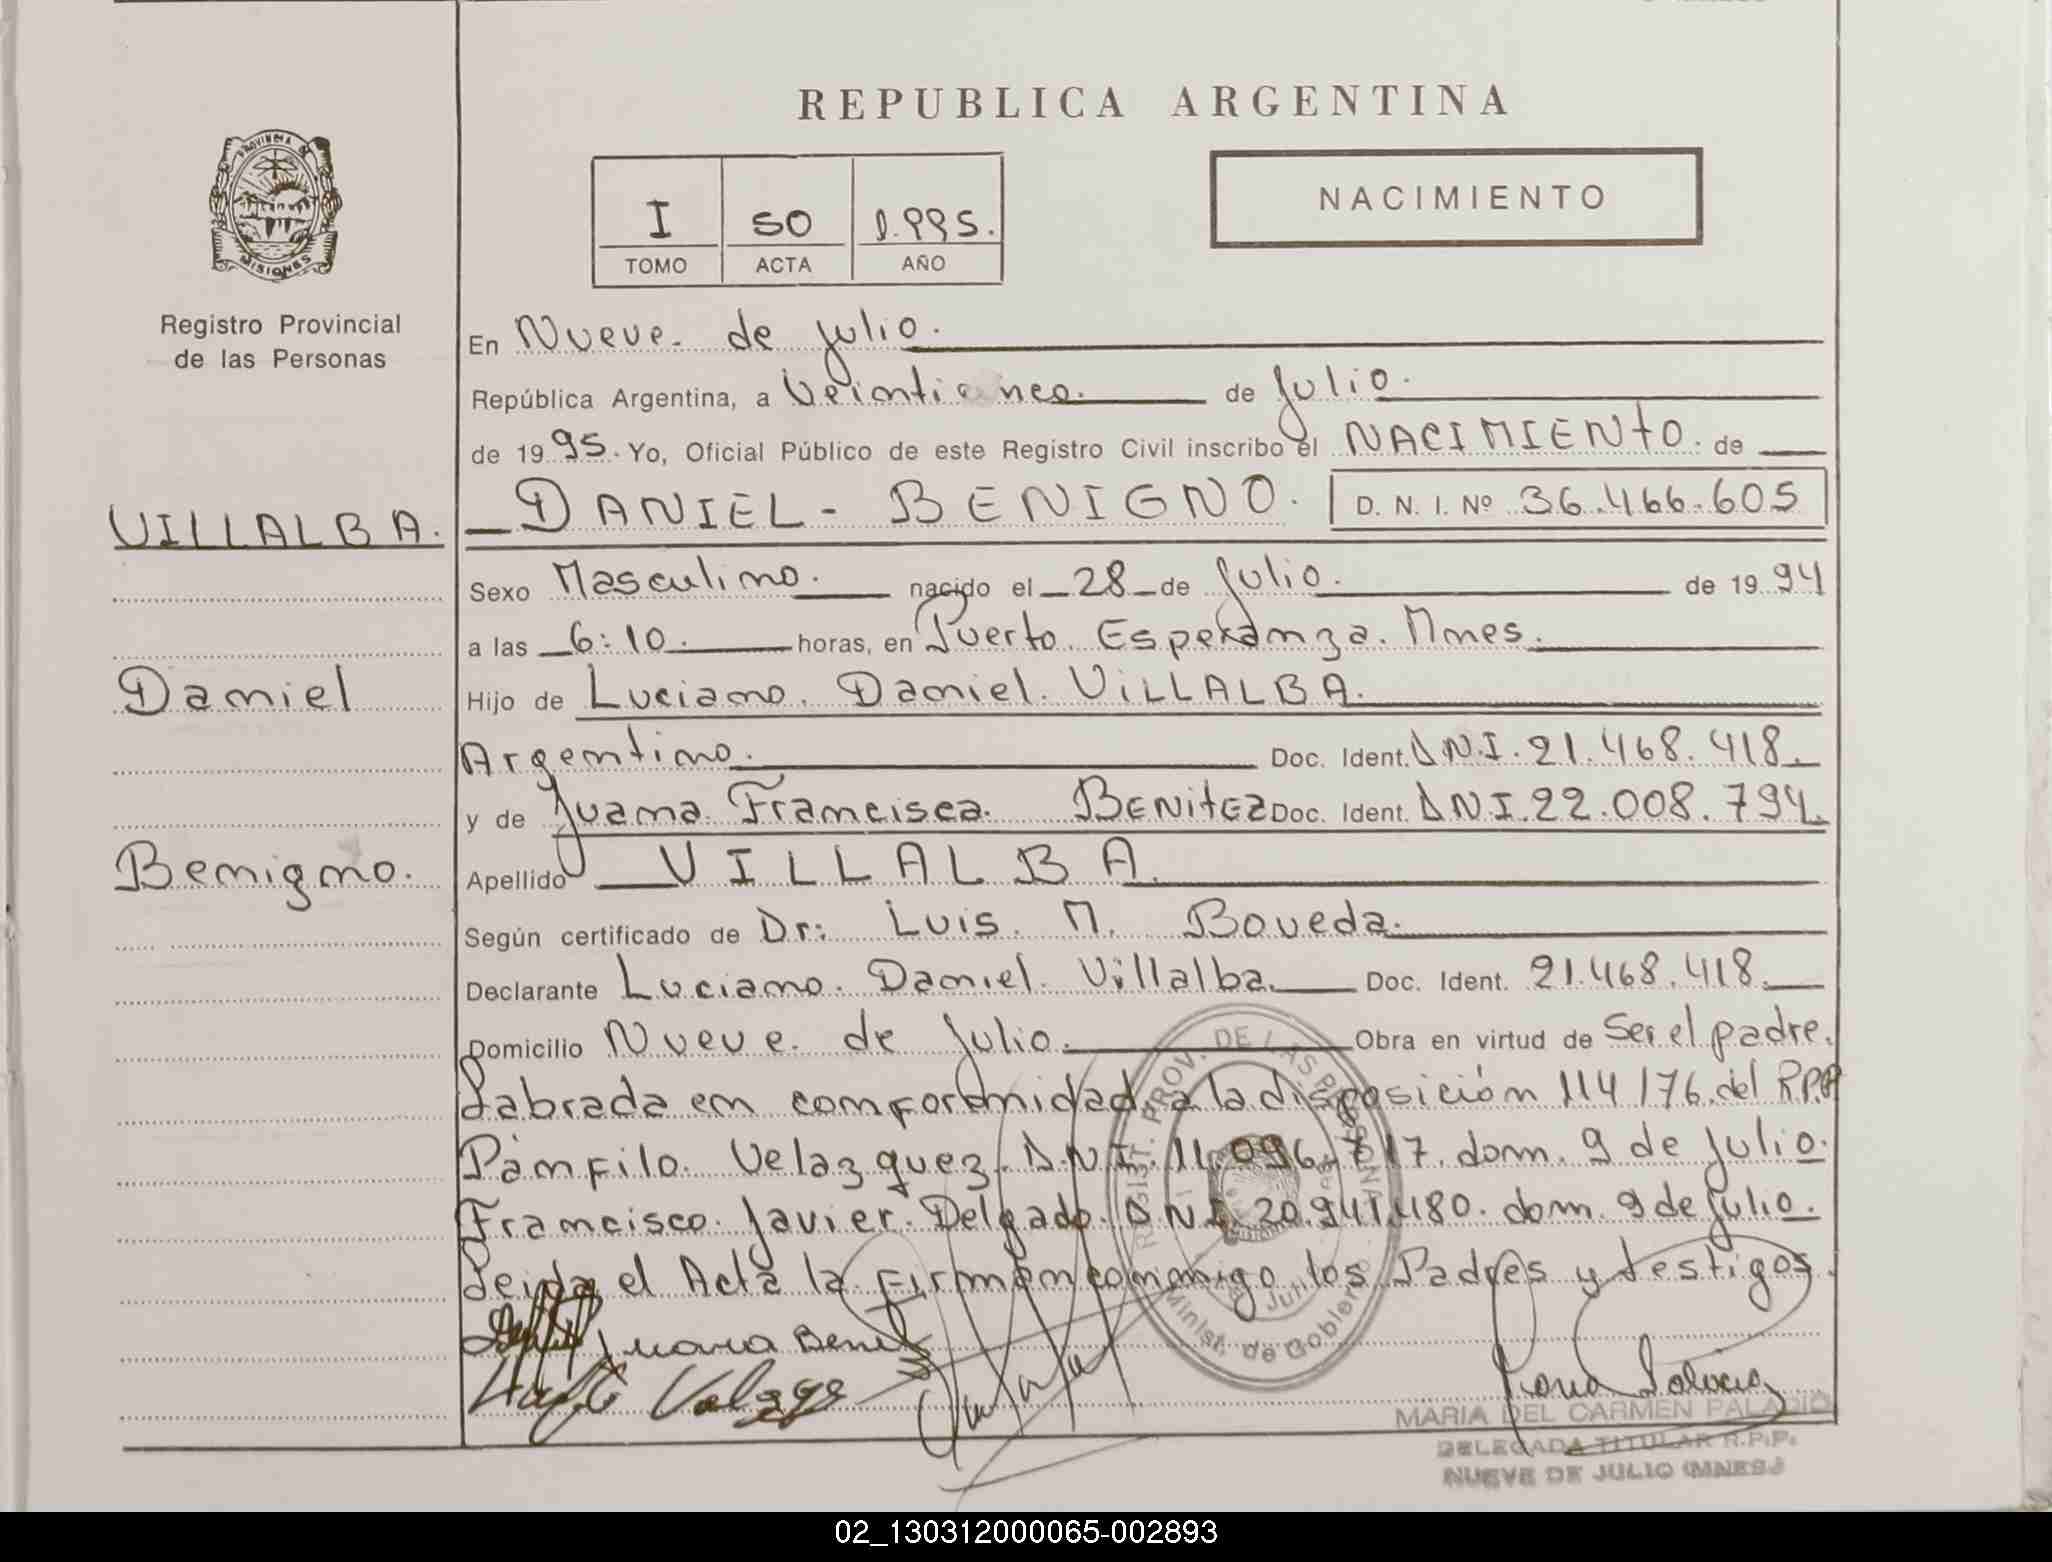 REPUBLICA ARGENTINA
PROVINCIA DE
MISIONES
Registro Provincial
de las Personas
I 50 1.995.
TOMO ACTA AÑO
NACIMIENTO
En Nueve de Julio.
República Argentina, a Veinticinco. de Julio.
de 1995. Yo, Oficial Público de este Registro Civil inscribo el NACIMIENTO. de
VILLALBA.
DANIEL - BENIGNO. D. N. I. Nº 36.466.605
Sexo Masculino. nacido el 28 de Julio. de 1994
a las 6:10. horas, en Puerto Esperanza. Mnes.
Daniel
Hijo de Luciano. Daniel. VILLALBA.
Argentino. Doc. Ident. D.N.I. 21.468.418.
y de Juana Francisca. BENITEZ Doc. Ident. D.N.I. 22.008.794.
Benigno.
Apellido VILLALBA.
Según certificado de Dr: Luis. M. Boveda.
Declarante Luciano. Daniel. Villalba. Doc. Ident. 21.468.418.
Domicilio Nueve de Julio. Obra en virtud de Ser el padre.
Labrada en comformidad a la disposición 114/76. del R.P.P
Pámfilo. Velazquez. D.N.I. 11.096.717. dom. 9 de Julio.
Francisco. Javier. Delgado. D.N.I. 20.941.480. dom. 9 de Julio.
Leida el Acta la Firman conmigo los Padres y testigos.
Juana Benitez
REGIST. PROV. DE LAS PERSONAS
Minist. de Gobierno
MARIA DEL CARMEN PALACIO
DELEGADA TITULAR R.P.P.
NUEVE DE JULIO (MNES.)
02_130312000065-002893